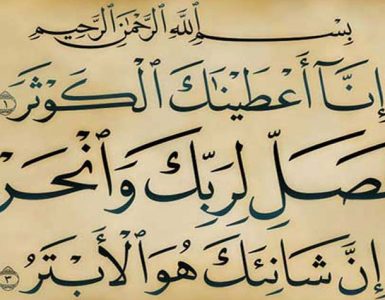 بِسْمِ اللَّهِ الرَّحْمَٰنِ الرَّحِيمِ
إِنَّآ أَعْطَيْنَٰكَ الْكَوْثَرَ ١
فَصَلِّ لِرَبِّكَ وَانْحَرْ
إِنَّ شَانِئَكَ هُوَ الْأَبْتَرُ ٣